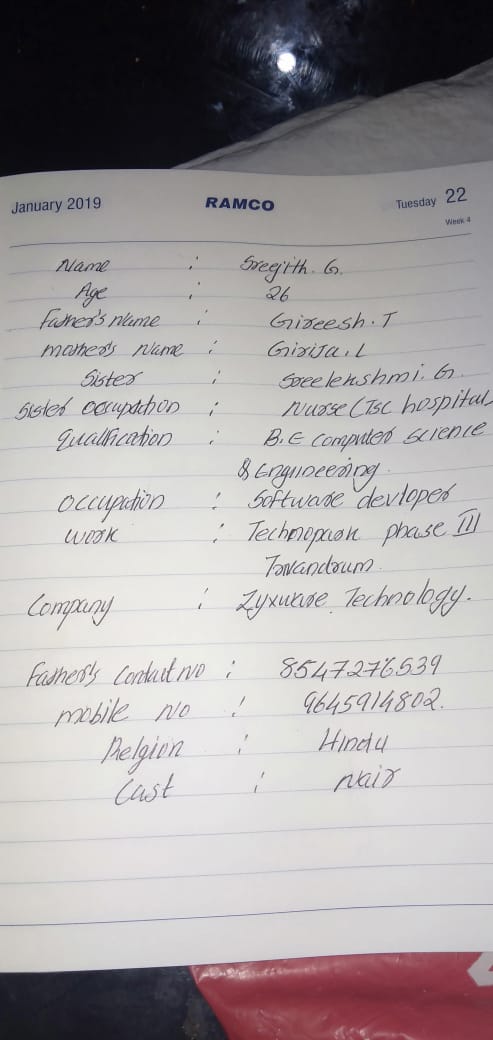 January 2019 RAMCO Tuesday 22
Week 4
Name : Sreejith. G.
Age : 26
Father's name : Gireesh. T
mother's Name : Girija. L
Sister : Sreelekshmi. G.
Sister occupation : Nurse (Tsc hospital
Qualification : B.E Computer Science
& Engineering.
Occupation : Software devloper
work : Technopark phase III
Trivandrum.
Company : Zyxware Technology.
Father's Contact No : 8547276539
mobile No : 9645914802.
Relgion : Hindu
Cast : Nair